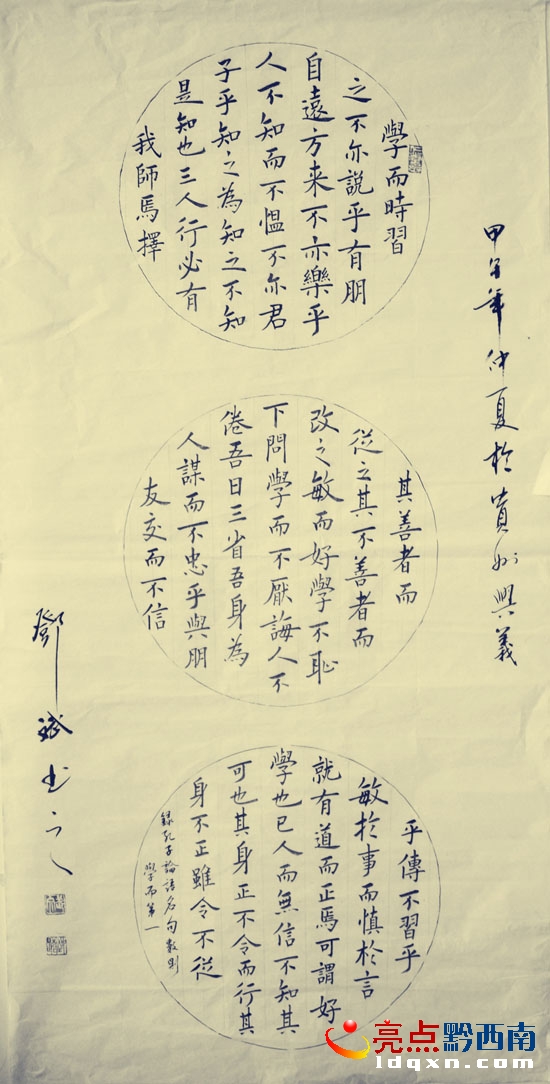 甲午年仲夏於貴州興義
學而時習
之不亦說乎有朋
自遠方来不亦樂乎
人不知而不愠不亦君
子乎知之為知之不知
是知也三人行必有
我師馬擇
其善者而
從之其不善者而
改之敏而好學不恥
下問學而不厭誨人不
倦吾日三省吾身為
人謀而不忠乎與朋
友交而不信
乎傳不習乎
敏於事而慎於言
就有道而正馬可謂好
學也已人而無信不知其
可也其身正不令而行其
身不正雖令不從
錄孔子論語名句數則
學而第一
鄧斌书之
亮点黔西南
ldqxn.com